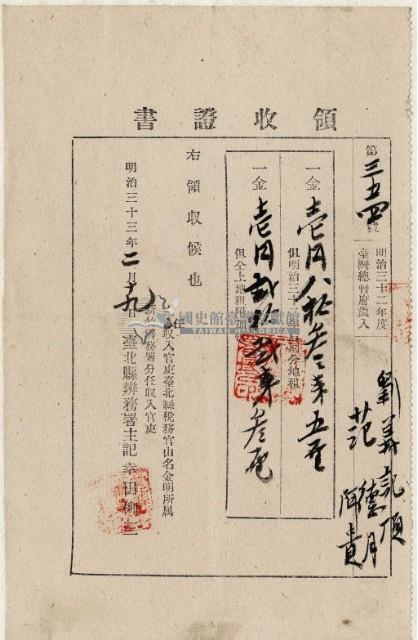 領收證書
第三五四號
明治三十二年度
臺灣總督府歲入
一金壹円八拾叁錢五厘
但明治三十二年
地租
一金壹円貳拾
錢叁厘
但仝上地租附加
右領收候也
明治三十三年二月九日
收入官吏臺北縣稅務官山名金明所属
辨務署分任收入官吏
臺北縣辨務署主記
幸田
劉
范
德
阿貴
國史館臺灣文獻館
TAIWAN HISTORICA